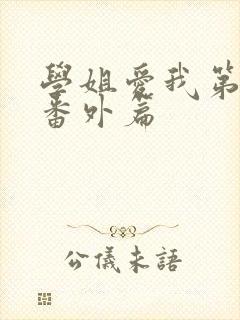 學姐愛我第
番外篇
公儀未語